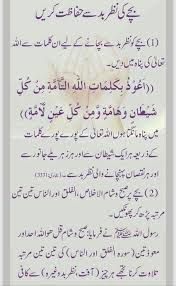 بچے کی نظر بد سے حفاظت کریں
(1) بچے کو نظر بد سے بچانے کے لیے ان کلمات سے اللہ
تعالیٰ کی پناہ میں دیں۔
﴿ أَعُوْذُ بِكَلِمَاتِ اللّٰهِ التَّآمَّةِ مِنْ كُلِّ
شَيْطَانٍ وَهَآمَّةٍ وَّمِنْ كُلِّ عَيْنٍ لَّآمَّةٍ﴾
میں پناہ مانگتا ہوں اللہ تعالیٰ کے پورے پورے کلمات
کے ذریعہ ہر ایک شیطان سے اور ہر زہریلے جانور سے
اور ہر نقصان پہنچانے والی نظر بد سے۔ (بخاری 3371)
(2) بچے پر صبح و شام الاخلاص، الفلق اور الناس تین تین
مرتبہ پڑھ کر پھونکیں۔
رسول اللہ ﷺ نے فرمایا: صبح و شام قل ھو اللہ احد اور
معوذتین (سورہ الفلق اور الناس) کی تین تین مرتبہ
تلاوت کرنا تجھے ہر چیز (آفت نظر بد وغیرہ) سے کافی